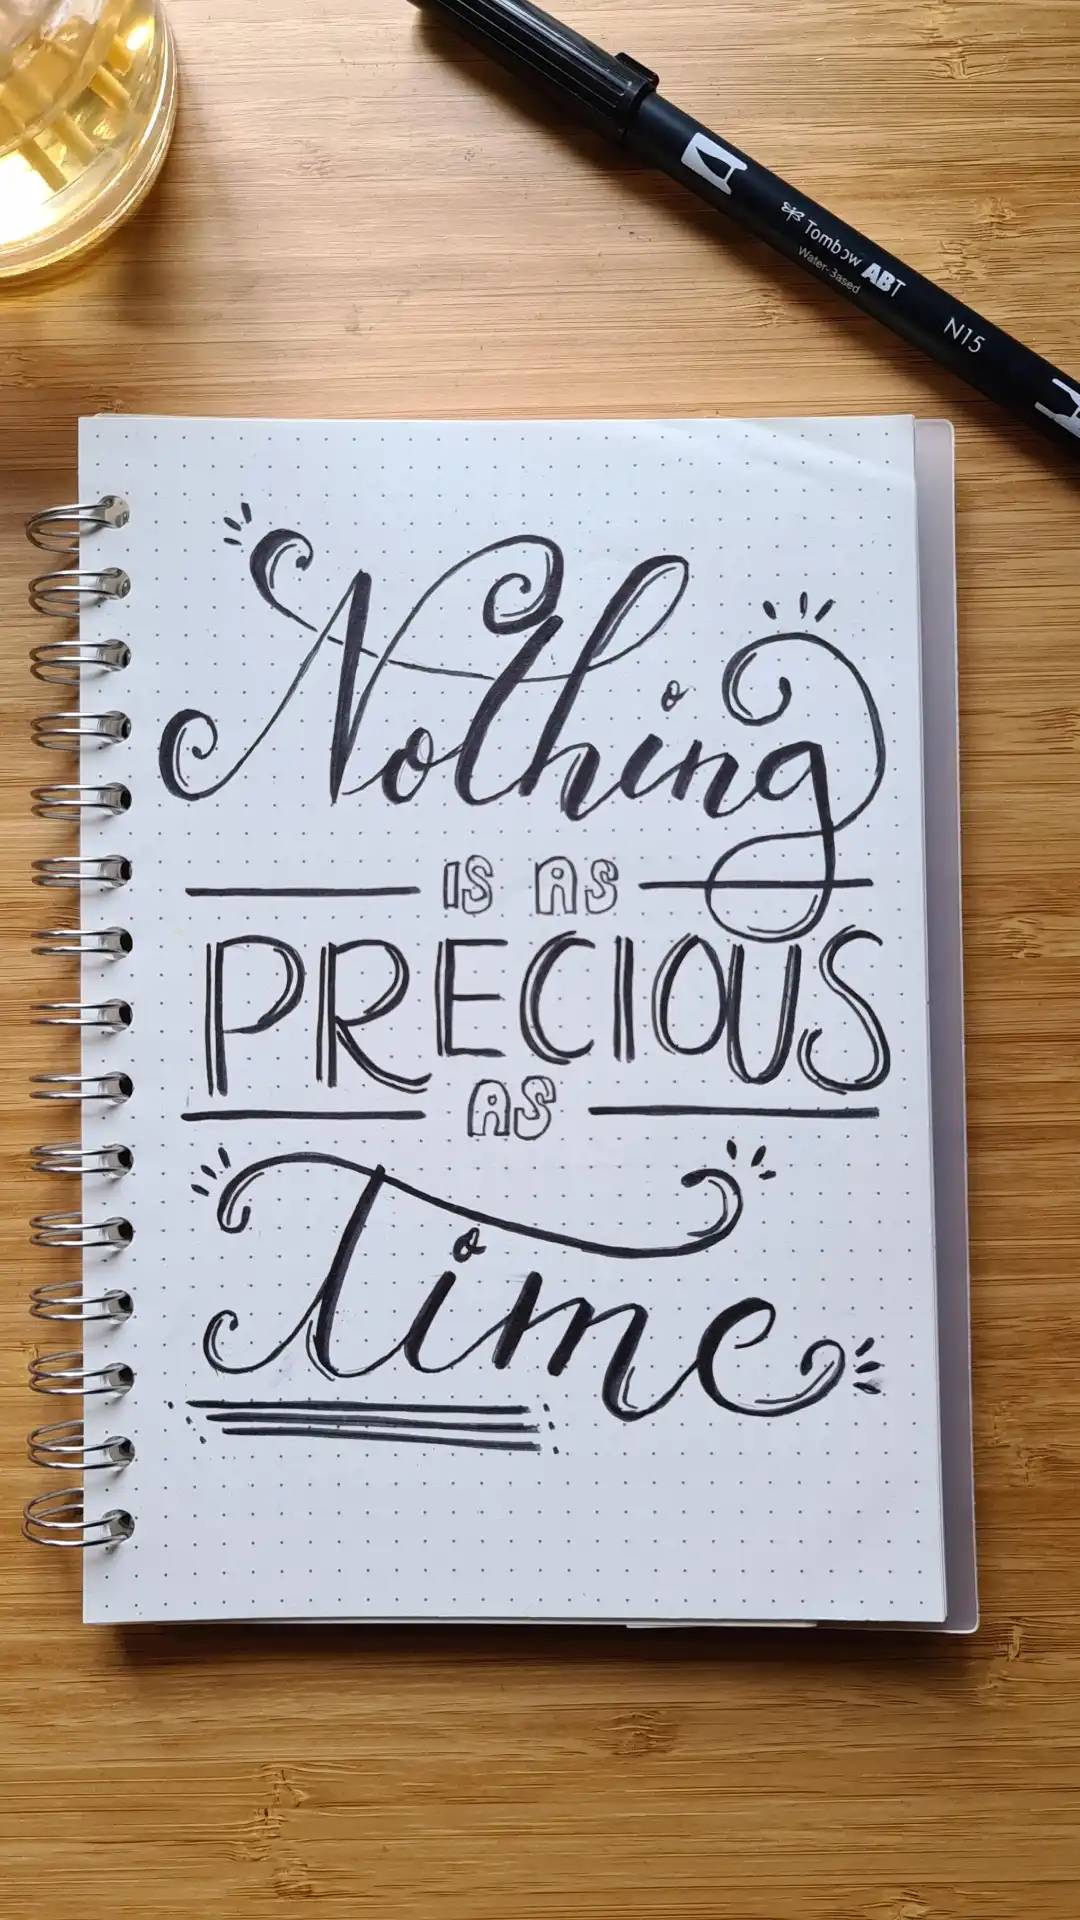 Tombow ABT
Water-Based
N15
Nothing
IS AS
PRECIOUS
AS
Time